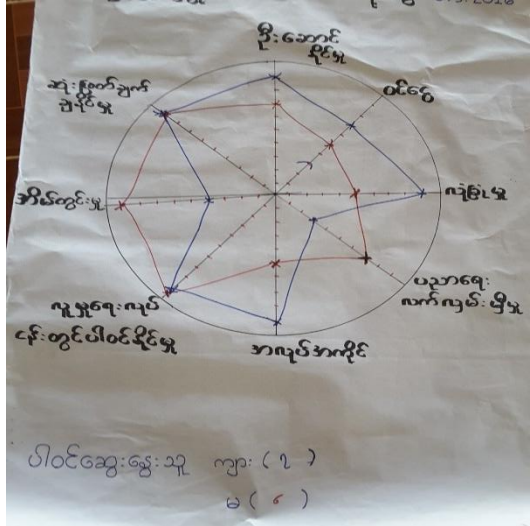 ဦးဆောင်
နိုင်မှု
ဝင်ငွေ
လုံခြုံမှု
ပညာရေး
လက်လှမ်းမှီမှု
အလုပ်အကိုင်
လူမှုရေးလုပ်
ငန်းတွင်ပါဝင်နိုင်မှု
အိမ်တွင်းမှု
ဆုံးဖြတ်ချက်
ချနိုင်မှု
ပါဝင်ဆွေးနွေးသူ ကျား ( ၇ )
မ ( ၉ )